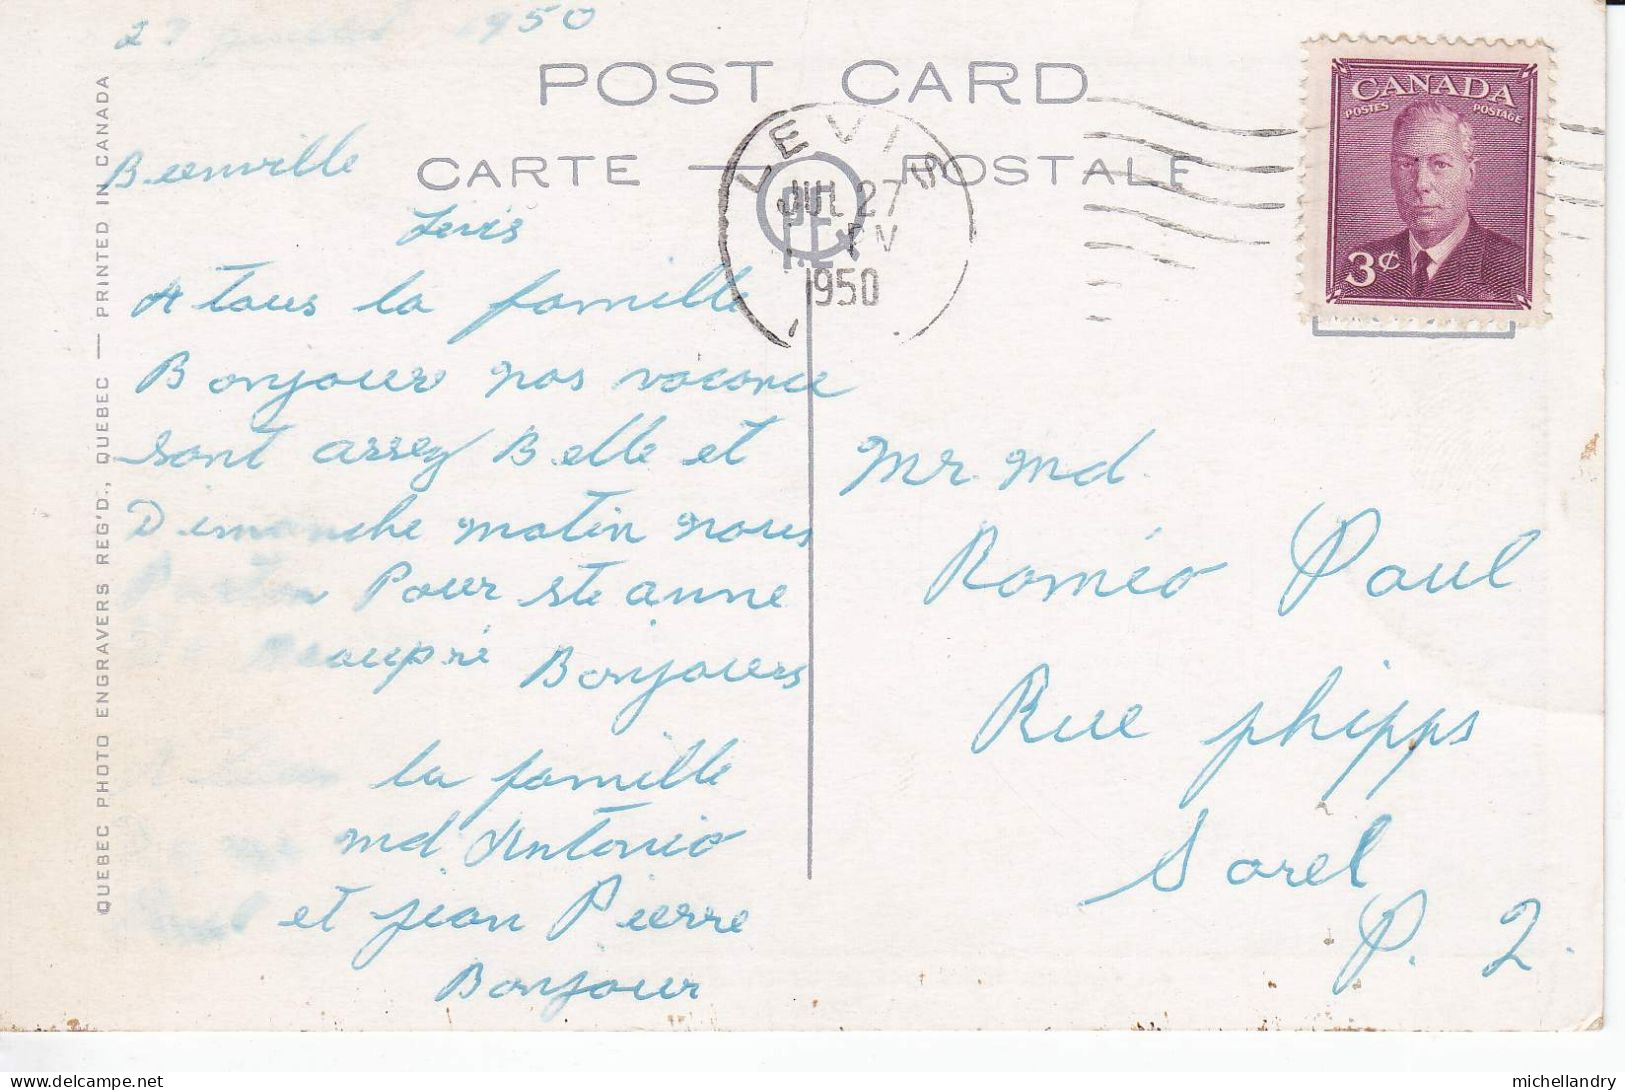 27 juillet 1950
POST CARD
CARTE POSTALE
LEVIS
JUL 27
PM
1950
CANADA
POSTES POSTAGE
3¢
QUEBEC PHOTO ENGRAVERS REG'D., QUEBEC — PRINTED IN CANADA
Bienville
Levis
A tous la famille
Bonjours nos vacance
sont assez Belle et
Dimanche matin nous
Parton Pour ste anne
Beaupré Bonjours
A tous la famille
md Antonio
Paul et jean Pierre
Bonjour
Mr. Md.
Roméo Paul
Rue phipps
Sorel
P. Q.
michellandry